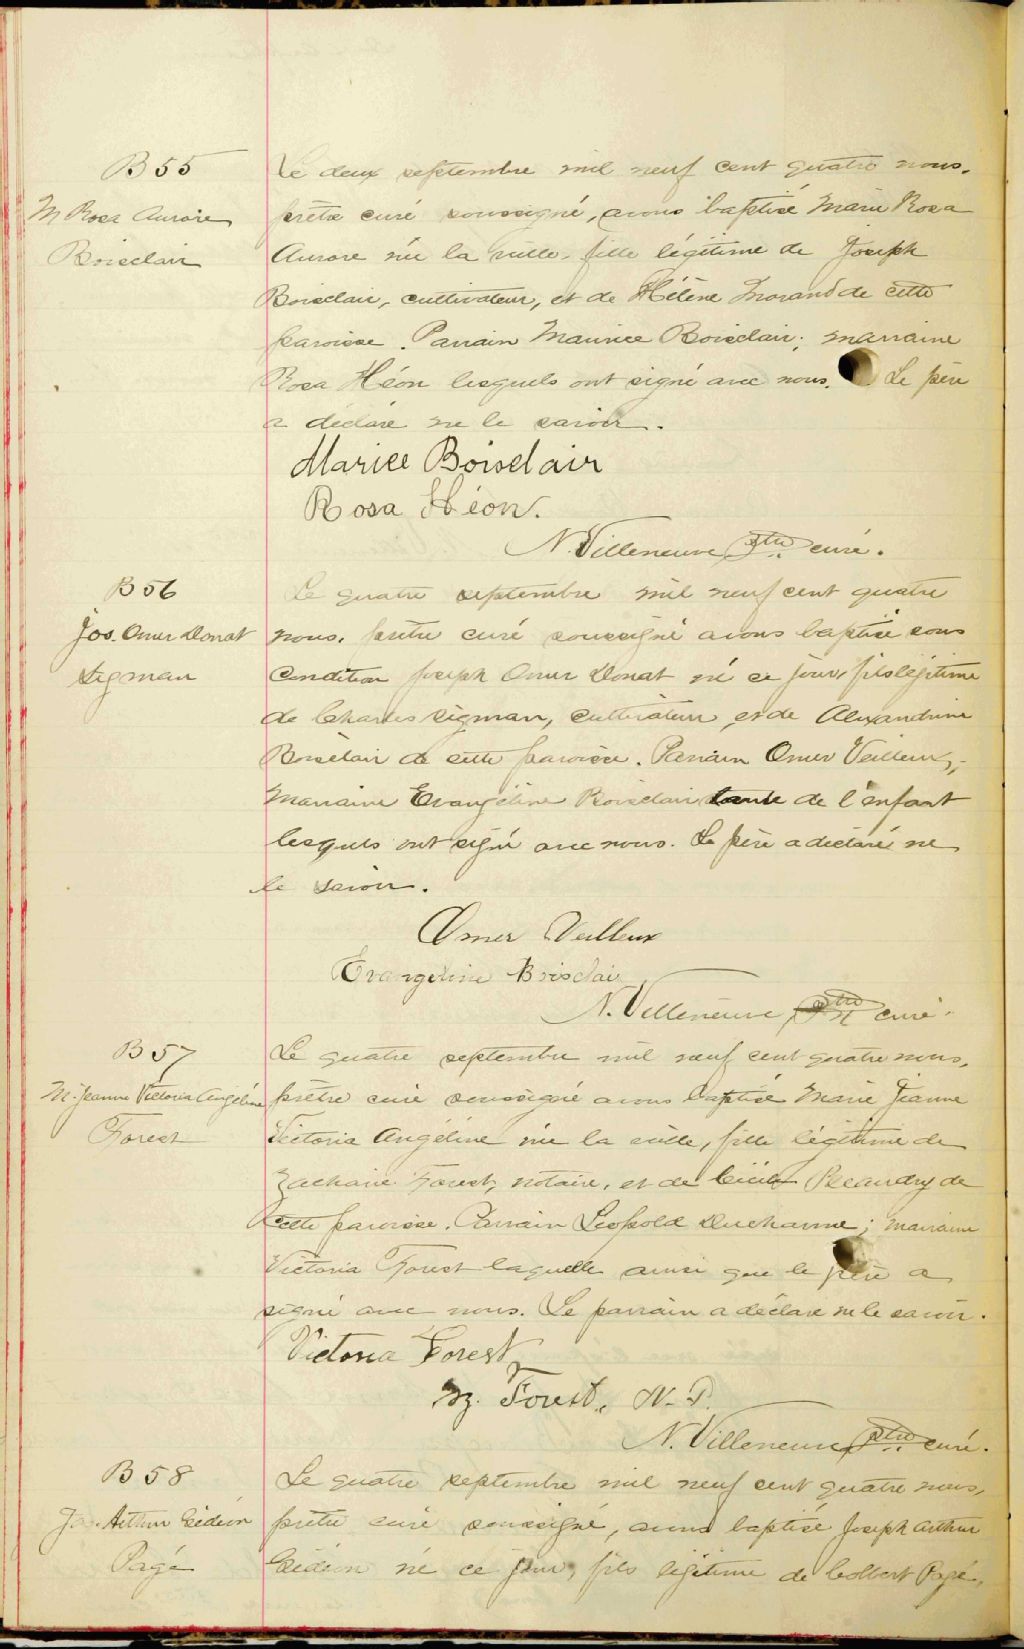 B 55
M Rosa Aurore
Boisclair
Le deux septembre mil neuf cent quatre nous,
prêtre curé soussigné, avons baptisé Marie Rosa
Aurore née la veille, fille légitime de Joseph
Boisclair, cultivateur, et de Hélène Morand de cette
paroisse. Parrain Maurice Boisclair; marraine
Rosa Héon lesquels ont signé avec nous. Le père
a déclaré ne le savoir.
Marice Boisclair
Rosa Héon.
N. Villeneuve, Ptre curé.
B 56
Jos. Omer Donat
Sigman
Le quatre septembre mil neuf cent quatre
nous, prêtre curé soussigné avons baptisé sous
condition Joseph Omer Donat né ce jour, fils légitime
de Charles Sigman, cultivateur, et de Alexandrine
Boisclair de cette paroisse. Parrain Omer Veilleux;
Marraine Evangéline Boisclair tante de l'enfant
lesquels ont signé avec nous. Le père a déclaré ne
le savoir.
Omer Veilleux
Evangeline Boisclair
N. Villeneuve, Ptre curé.
B 57
M. Jeanne Victoria Angéline
Forest
Le quatre septembre mil neuf cent quatre nous,
prêtre curé soussigné avons baptisé Marie Jeanne
Victoria Angéline née la veille, fille légitime de
Zacharie Forest, notaire, et de Cécile Beaudry de
cette paroisse. Parrain Léopold Ducharme; marraine
Victoria Forest laquelle ainsi que le père a
signé avec nous. Le parrain a déclaré ne le savoir.
Victoria Forest
Forest, N. P.
N. Villeneuve, Ptre curé.
B 58
Jos. Arthur Gédéon
Pagé
Le quatre septembre mil neuf cent quatre nous,
prêtre curé soussigné, avons baptisé Joseph Arthur
Gédéon né ce jour, fils légitime de Colbert Pagé,